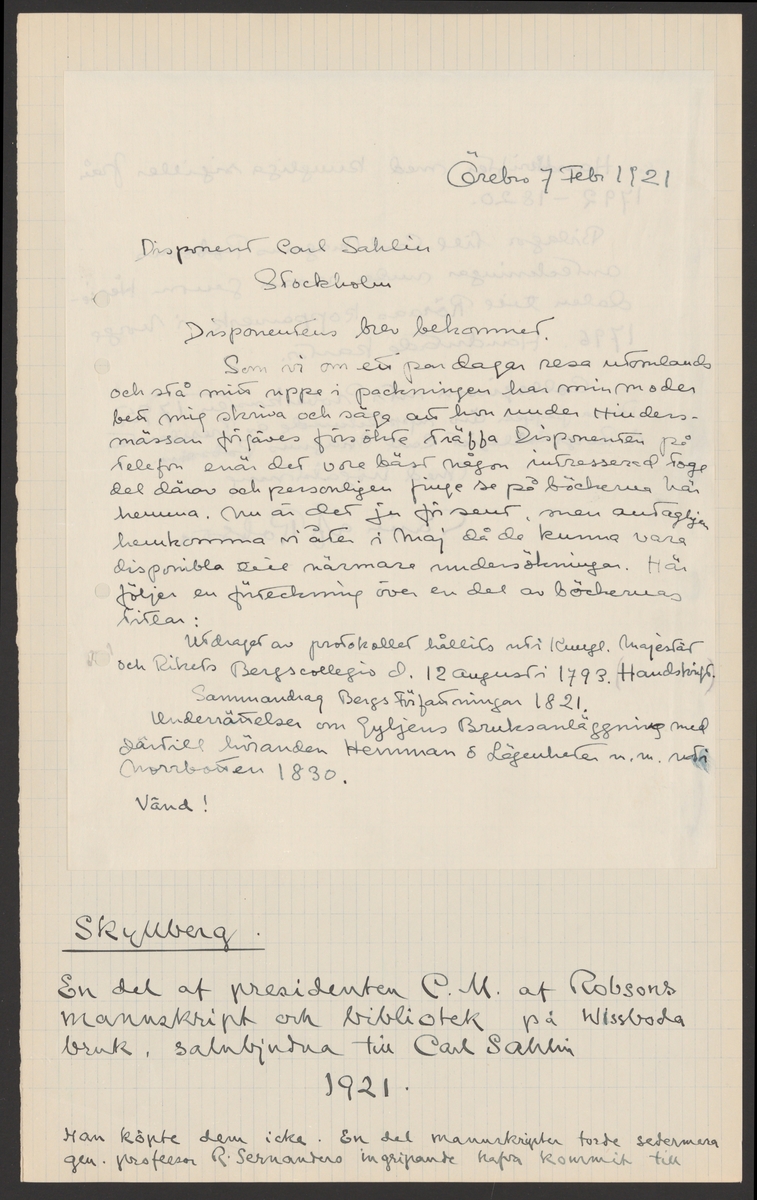 Örebro 7 Febr 1921
Disponent Carl Sahlin
Stockholm
Disponentens brev bekommet.
Som vi om ett par dagar resa utomlands
och stå mitt uppe i packningen har min moder
bett mig skriva och säga att hon under Hinders-
mässan förgäves försökte träffa Disponenten på
telefon enär det vore bäst någon intresserad toge
del därav och personligen finge se på böckerna här
hemma. Nu är det ju för sent, men antagligen
hemkomma vi åter i Maj då de kunna vara
disponibla till närmare undersökningar. Här
följer en förteckning över en del av böckernas
titlar:
Utdraget av protokollet hållits uti Kungl. Majestät
och Rikets Bergscollegio d. 12 augusti 1793. (Handskrift.)
Sammandrag Bergs Författningar 1821.
Underrättelser om Gyljens Bruksanläggning med
därtill höranden Hemman & Lägenheter n. m. uti
Norrbotten 1830.
Vänd!
Skyllberg.
En del af presidenten C. M. af Robsons
mannskript och bibliotek på Wissboda
bruk, salubjudna till Carl Sahlin
1921.
Han köpte dem icke. En del manuskripter torde sedermera
gen. professor R. Sernanders ingripande hafva kommit till